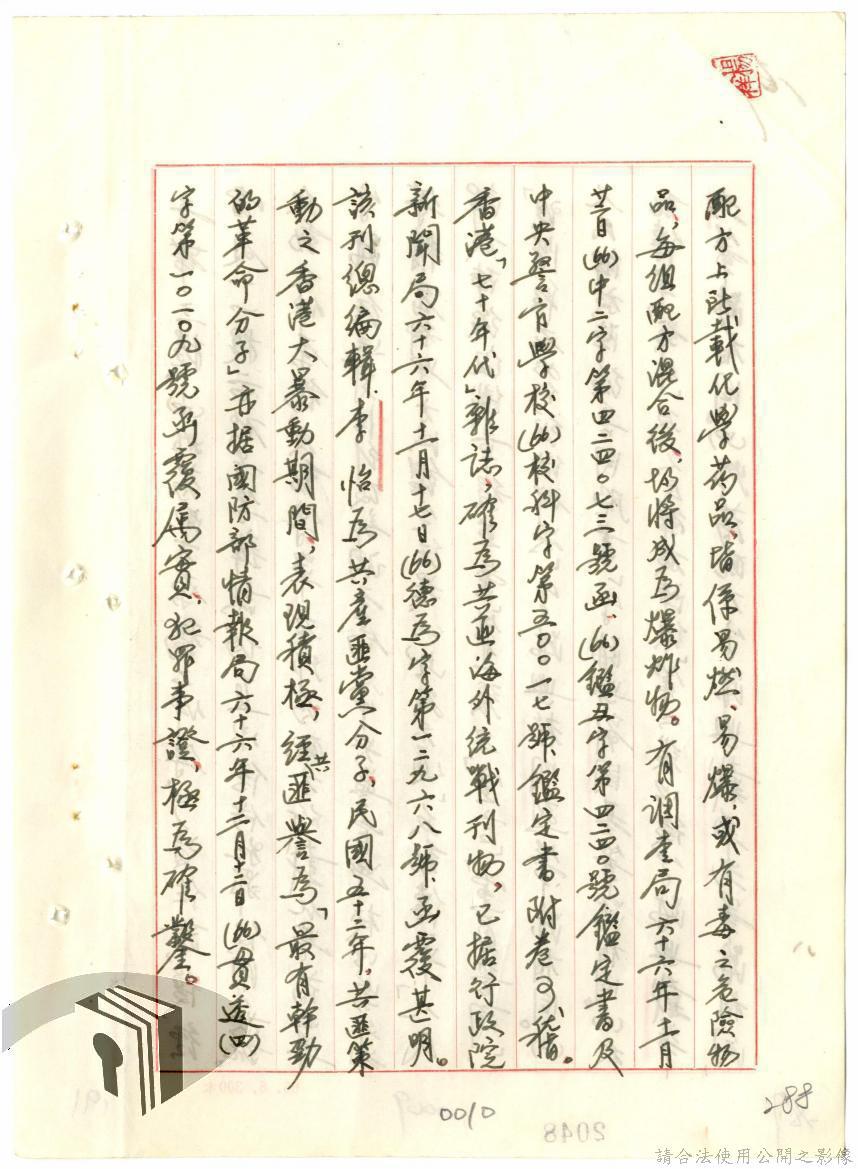 配方上所載化學药品，皆係易燃、易爆，或有毒之危險物
品，每組配方混合後，均將成為爆炸物。有調查局六十六年十一月
廿日(66)中二字第四二四〇七三號函、(66)鑑丑字第四二四〇號鑑定書及
中央警官學校(66)校科字第五〇〇一七號鑑定書附卷可稽。
香港「七十年代」雜誌，確為共匪海外統戰刊物，已据行政院
新聞局六十六年十一月十七日(66)德為字第一二九六八號函覆甚明。
該刊總編輯李怡為共產匪黨分子，民國五十二年，共匪策
動之香港大暴動期間，表現積極，經共匪譽為「最有幹勁
的革命分子」亦据國防部情報局六十六年十二月十二日(66)貫透(四)
字第一〇一〇九號函覆属實，犯罪事證，極為確鑿。
0010
288
2048
請合法使用公開之影像